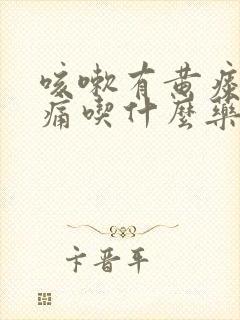 咳嗽有黄痰
痛喫什麼藥
卞晋平